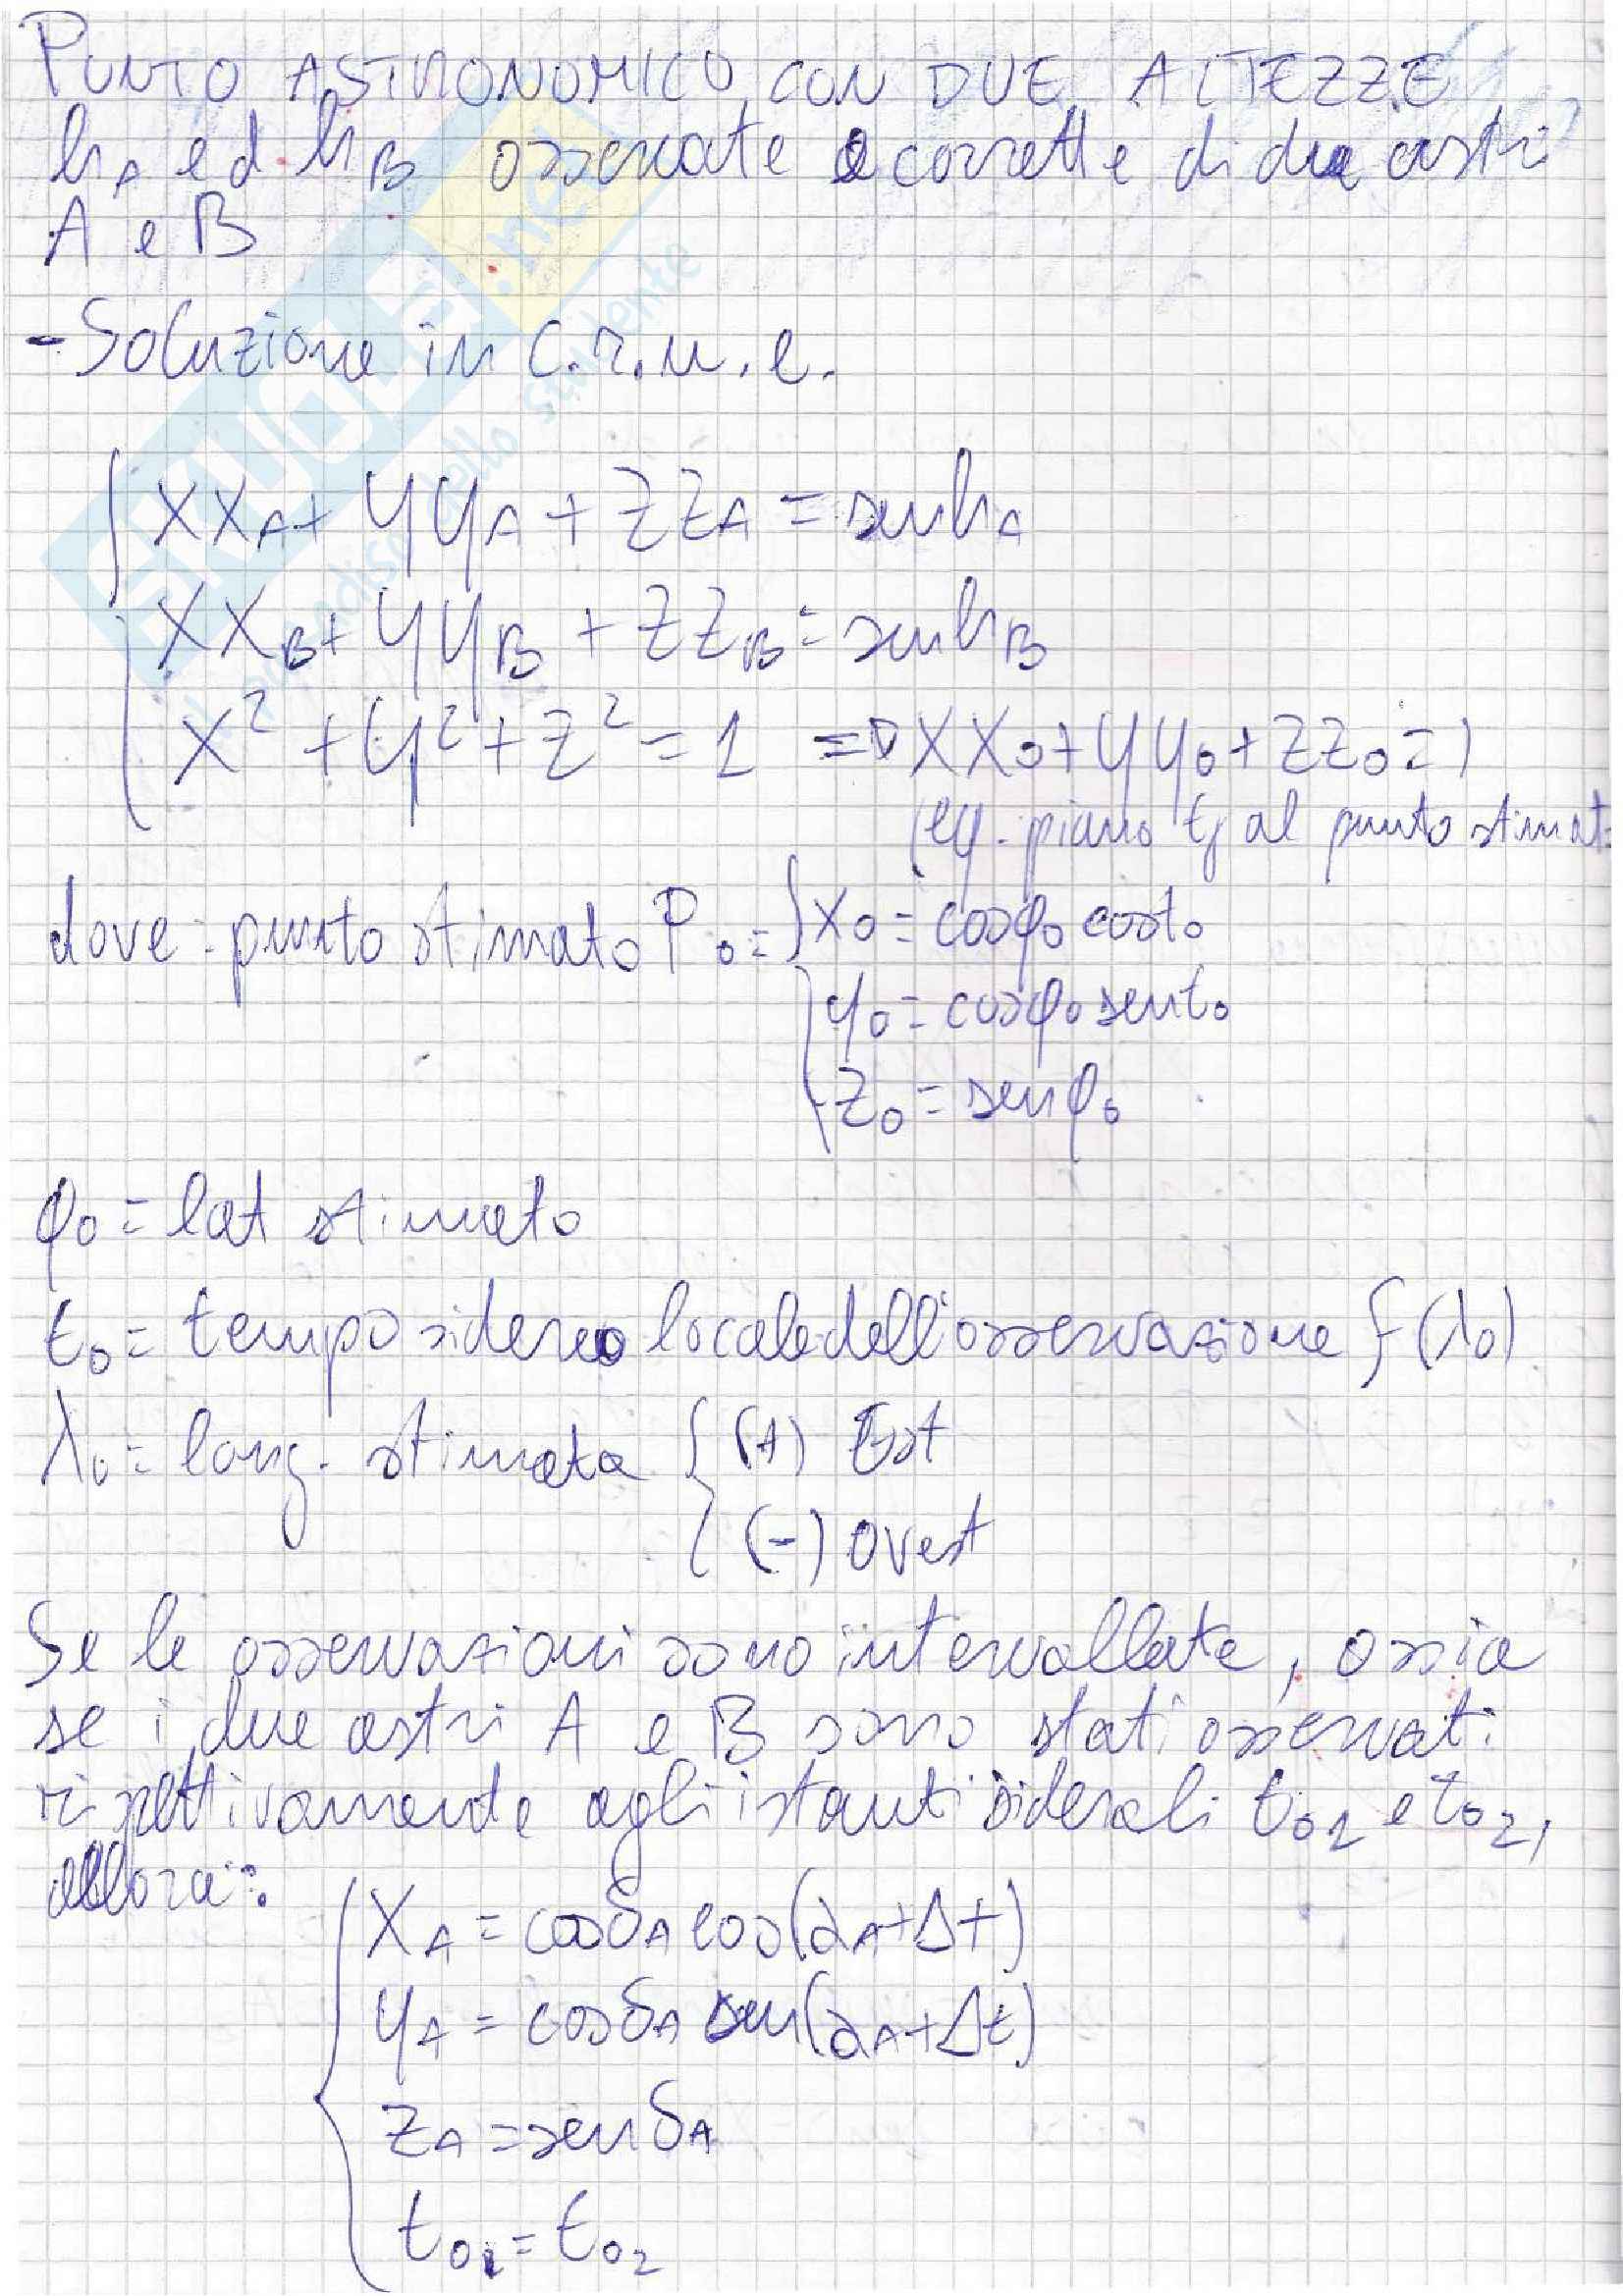 PUNTO ASTRONOMICO CON DUE ALTEZZE
hA ed hB osservate e corrette di due astri
A e B
- Soluzione in c.r.m.e.
XXA + YYA + ZZA = senhA
XXB + YYB + ZZB = senhB
X² + Y² + Z² = 1 => XX0 + YY0 + ZZ0 = 1
(eq. piano tg al punto stimato
dove: punto stimato P0 = { X0 = cosφ0 cost0
y0 = cosφ0 sent0
Z0 = senφ0
φ0 = lat stimato
t0 = tempo sidereo locale dell'osservazione f(λ0)
λ0 = long. stimata { (+) Est
(-) Ovest
Se le osservazioni sono intervallate, ossia
se i due astri A e B sono stati osservati
rispettivamente agli istanti siderali t01 e t02,
allora:
XA = cosδA cos(αA+Δt)
yA = cosδA sen(αA+Δt)
ZA = senδA
t01 = t02
SKUOLA.net
il paradiso dello studente